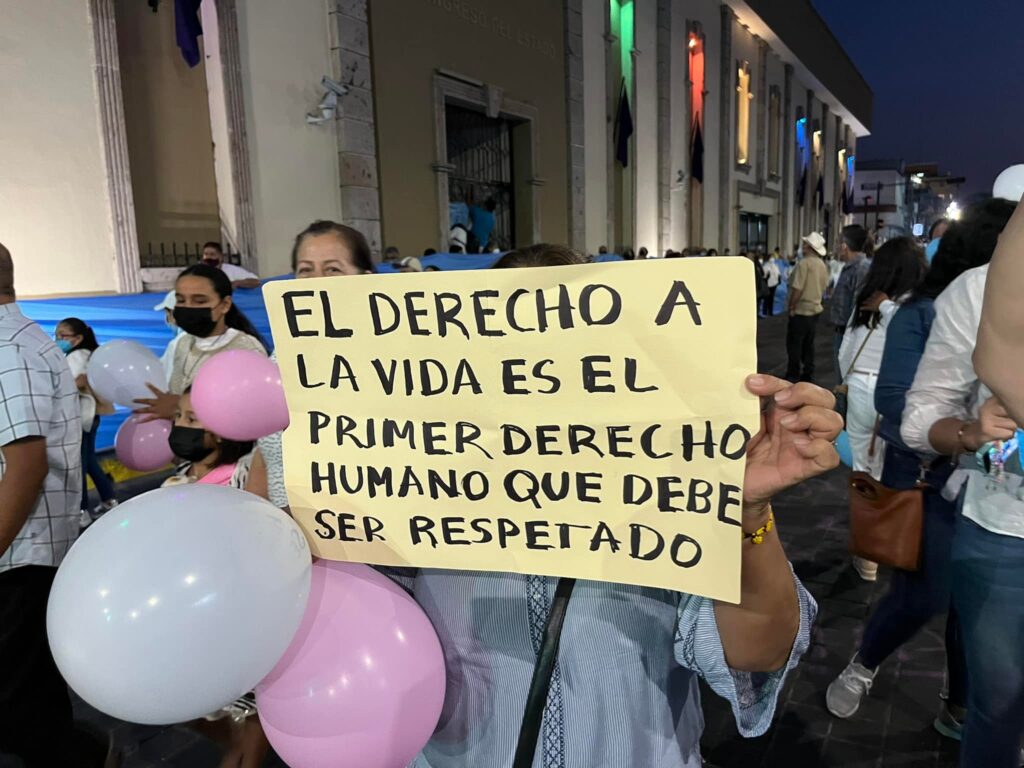 CONGRESO DEL ESTADO
EL DERECHO A
LA VIDA ES EL
PRIMER DERECHO
HUMANO QUE DEBE
SER RESPETADO